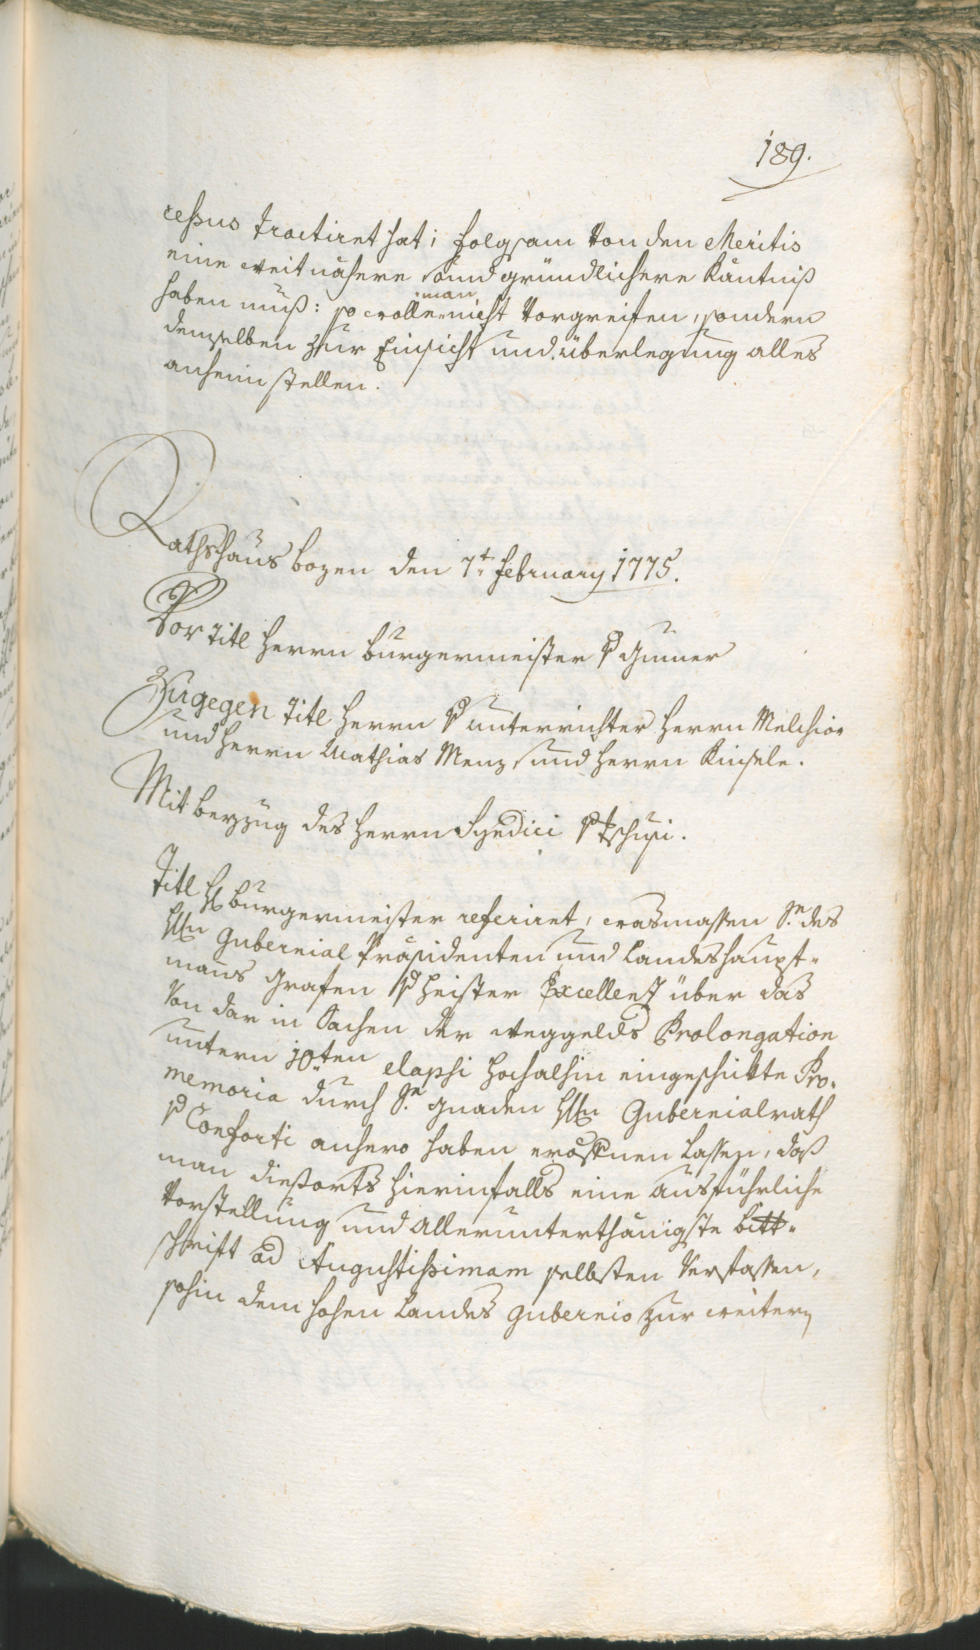 189.
cessus tractiret hat; folgsam von den Meritis
eine weit nähere und gründlichere Käntniß
haben muß: so wolle man nicht vorgreifen, sondern
demselben zur Einsicht und überlegung alles
anheim stellen.
Rathshaus bozen den 7t. february 1775.
Vor Titl herrn burgermeister v Gumer
Zugegen Titl herrn v unterrichter herrn Melchior
und herrn Mathias Menz und herrn Kinsele.
Mit beyzug des herrn Syndici v Tschusi.
Titl H burgermeister referiret, wasmassen Sr. des
Hrn Gubernial Präsidenten und Landeshaupt-
manns Grafen v Heister Excellenz über das
von dar in Sachen der weggelds Prolongation
untern 10ten elapsi hochalhin eingeschikte Pro-
memoria durch Sr. gnaden Hrn Gubernialrath
v Conforti anhero haben eröffnen lassen, daß
man diesorts hierinfalls eine ausführliche
Vorstellung und allerunterthänigste bitt-
schrift ad Augustissimam selbsten verfassen,
sohin dem hohen Landes gubernio zur weitern